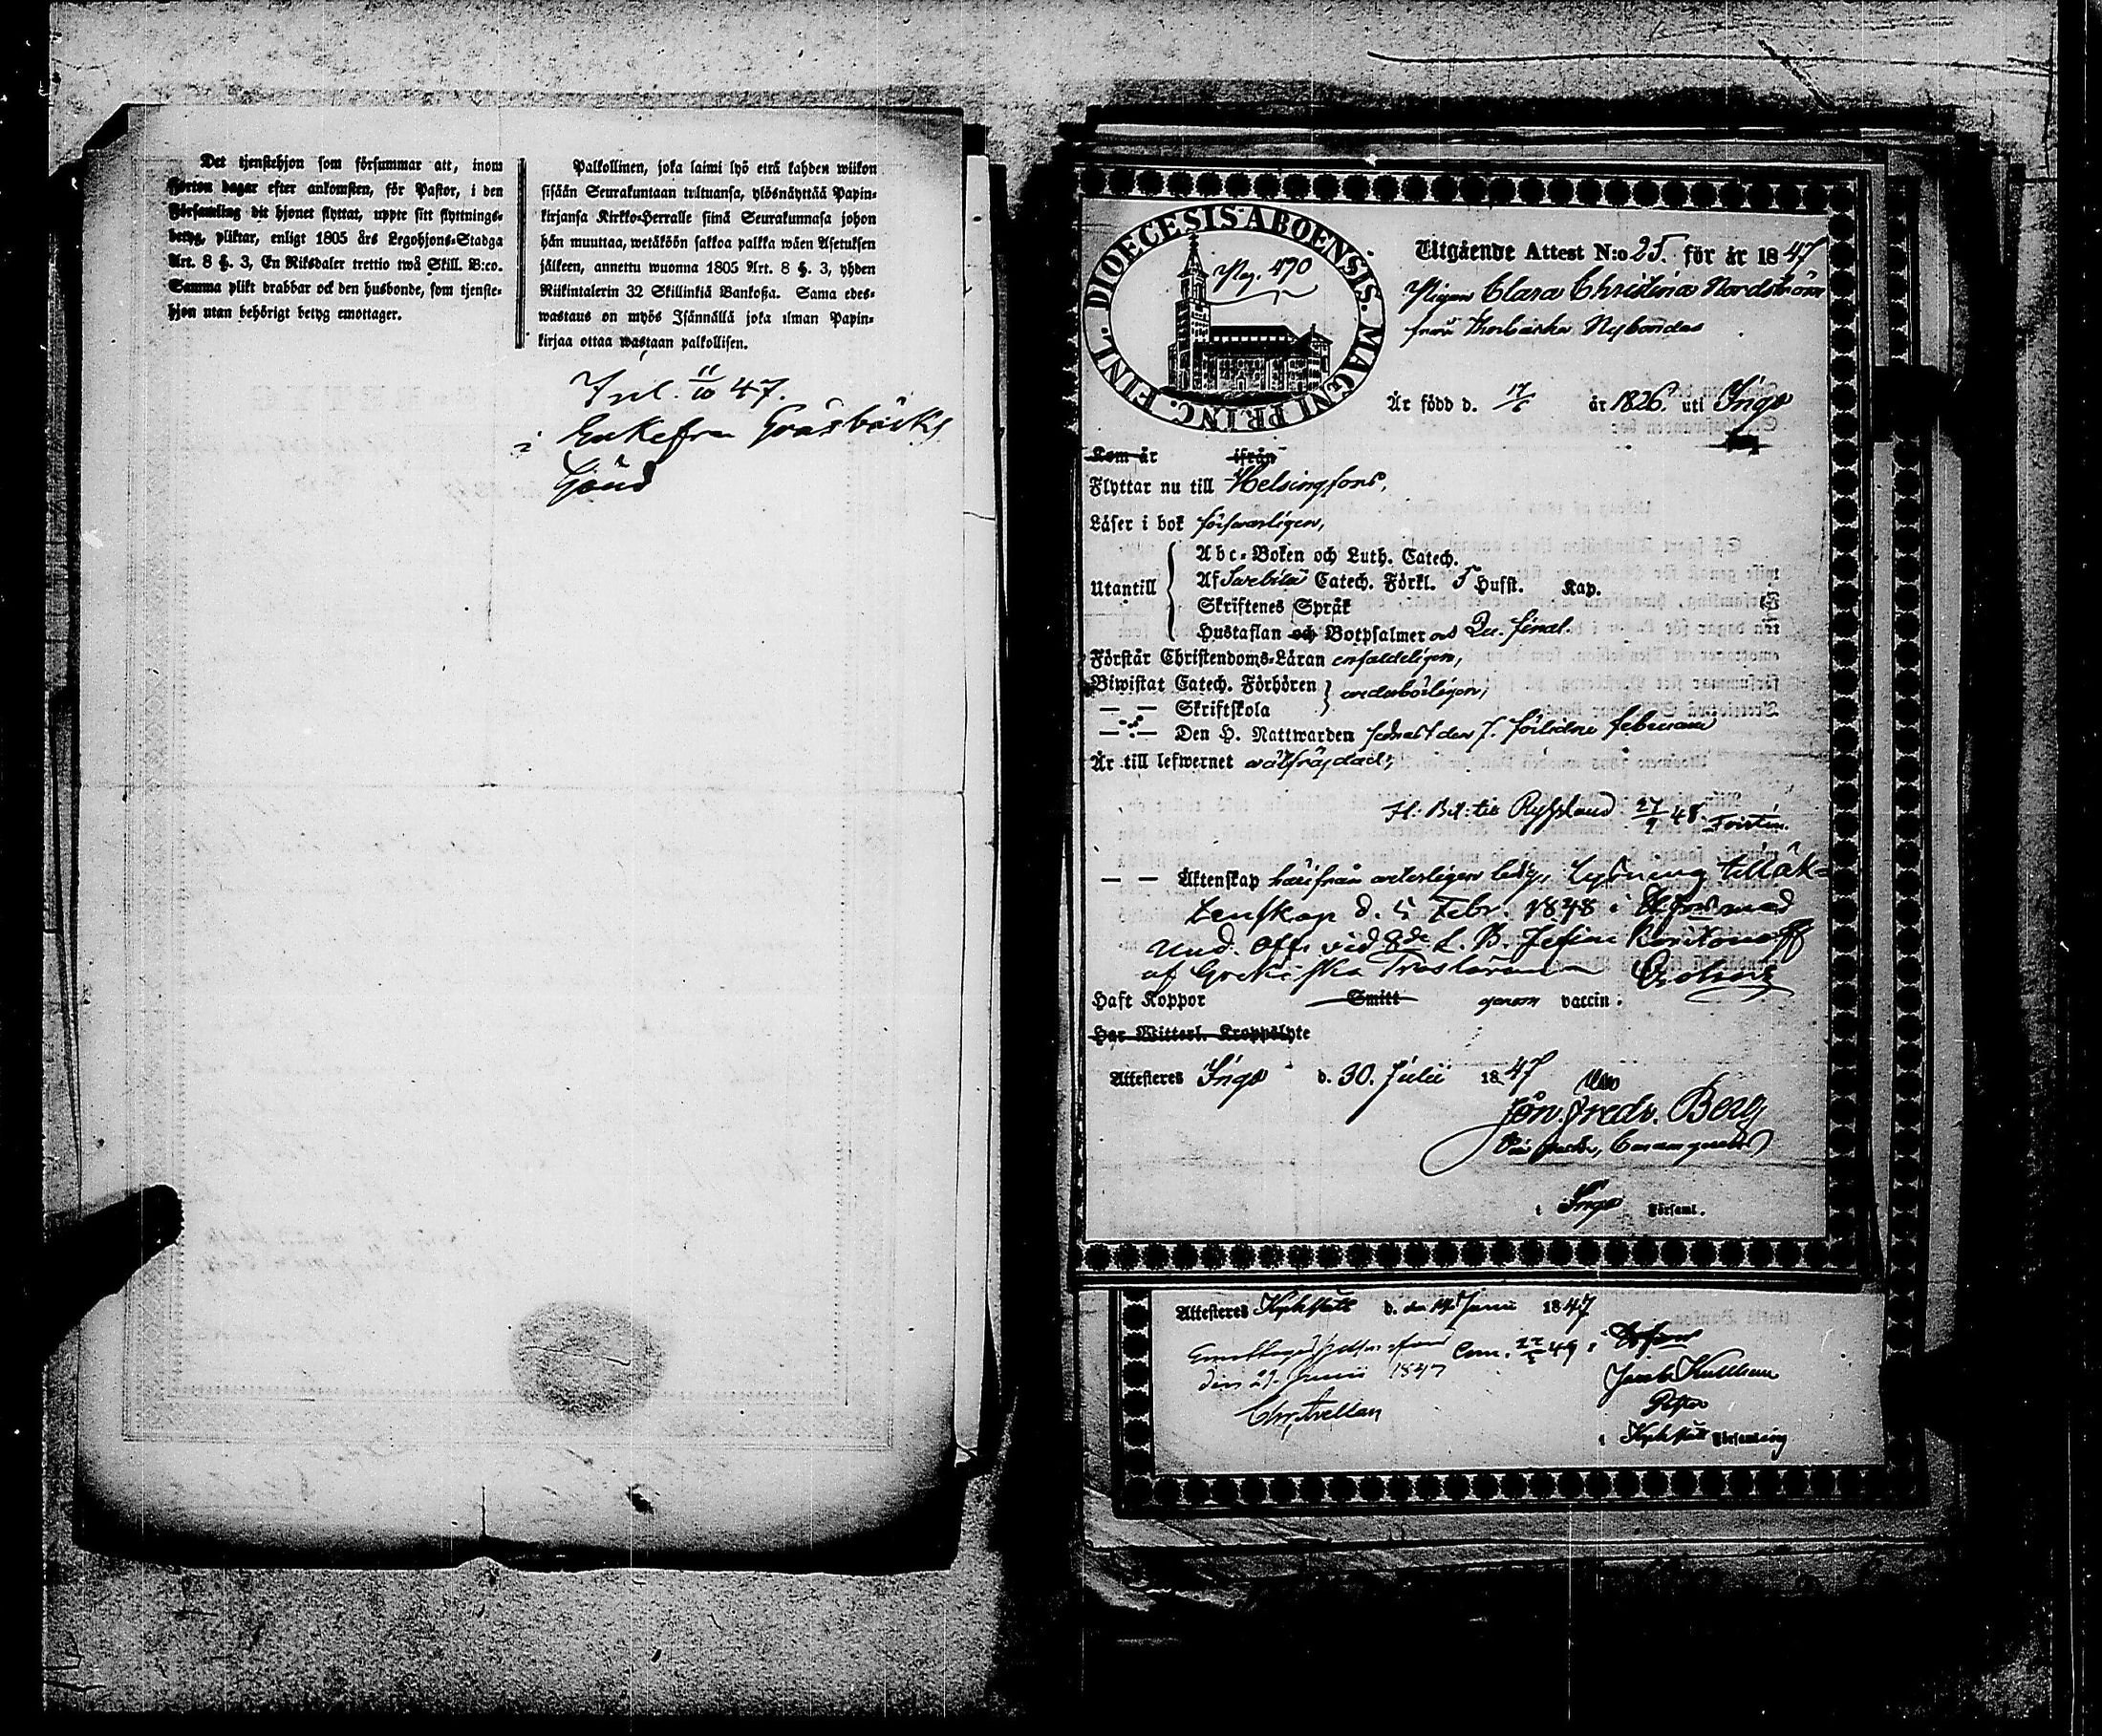 Det tjenstehjon som försummar att, inom
fjorton dagar efter ankomsten, för Pastor, i den
Församling dit hjonet flyttat, uppte sitt flyttnings-
betyg, pliktar, enligt 1805 års Legohjons-Stadga
Art. 8 §. 3, En Riksdaler trettio twå Skill. B:co.
Samma plikt drabbar ock den husbonde, som tjenste-
hjon utan behörigt betyg emottager.
Palkollinen, joka laimi lyö etrá kahden wiikon
sisään Seurakuntaan tultuansa, ylösnäyttää Papin-
kirjansa Kirkko-Herralle siinä Seurakunnasa johon
hän muuttaa, wetäköön sakkoa palkka wäen Asetuksen
jälkeen, annettu wuonna 1805 Art. 8 §. 3, yhden
Riikintalerin 32 Skillinkiä Bankoßa. Sama edes-
wastaus on myös Isännällä joka ilman Papin-
kirjaa ottaa wastaan palkollisen.
Inl. 11/10 47.
i Enkefru Gräsbäcks
Gård
DIOECESIS ABOENSIS. MAGNI PRINC. FINL.
470
Utgående Attest N:o 25. för år 1847
Pigan Clara Christina Nordström
från Nybondas
Är född d. 17 år 1826. uti Ingo
Kom år ifrån
Flyttar nu till Helsingfors,
Läser i bok försvarligen,
Utantill
Abc-Boken och Luth. Catech.
Af Svebilii Catech. Förkl. 5 Hufst. Kap.
Skriftenes Språk
Hustaflan och Botpsalmer
Förstår Christendoms-Läran enfaldeligen,
Biwistat Catech. Förhören
— — Skriftskola
— — Den H. Nattwarden senast den 7. förlidne februarii
Är till lefwernet wälfräjdad;
till Ryssland 27/9 48.
— — Äktenskap härifrån ledig, Lysning till äk-
tenskap d. 5 Febr. 1848 i med
Und. Off. vid L. B. Jefim
af Grekiska Trosläran
Haft Koppor Smitt genom vaccin.
Har Witterl. Kroppslyte
Attesteres Ingo d. 30. Julii 1847
Fredr. Berg
i Ingo Församl.
Attesteres d. Junii 1847
den 21. Junii 1847
Chr. Avellan
i Församling